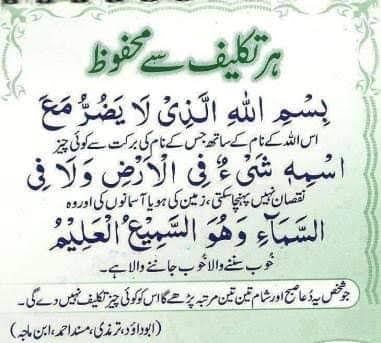 ہر تکلیف سے محفوظ
بِسْمِ اللهِ الَّذِیْ لَا يَضُرُّ مَعَ
اس اللہ کے نام کے ساتھ جس کے نام کی برکت سے کوئی چیز
اسْمِهٖ شَیْءٌ فِی الْاَرْضِ وَلَا فِی
نقصان نہیں پہنچا سکتی، زمین کی ہو یا آسمانوں کی اور وہ
السَّمَآءِ وَهُوَ السَّمِيْعُ الْعَلِيْمُ
خُوب سننے والا خُوب جاننے والا ہے۔
جو شخص یہ دُعا صبح اور شام تین تین مرتبہ پڑھے گا اس کو کوئی چیز تکلیف نہیں دے گی۔
(ابو داؤد، ترمذی، مسند احمد، ابن ماجہ)